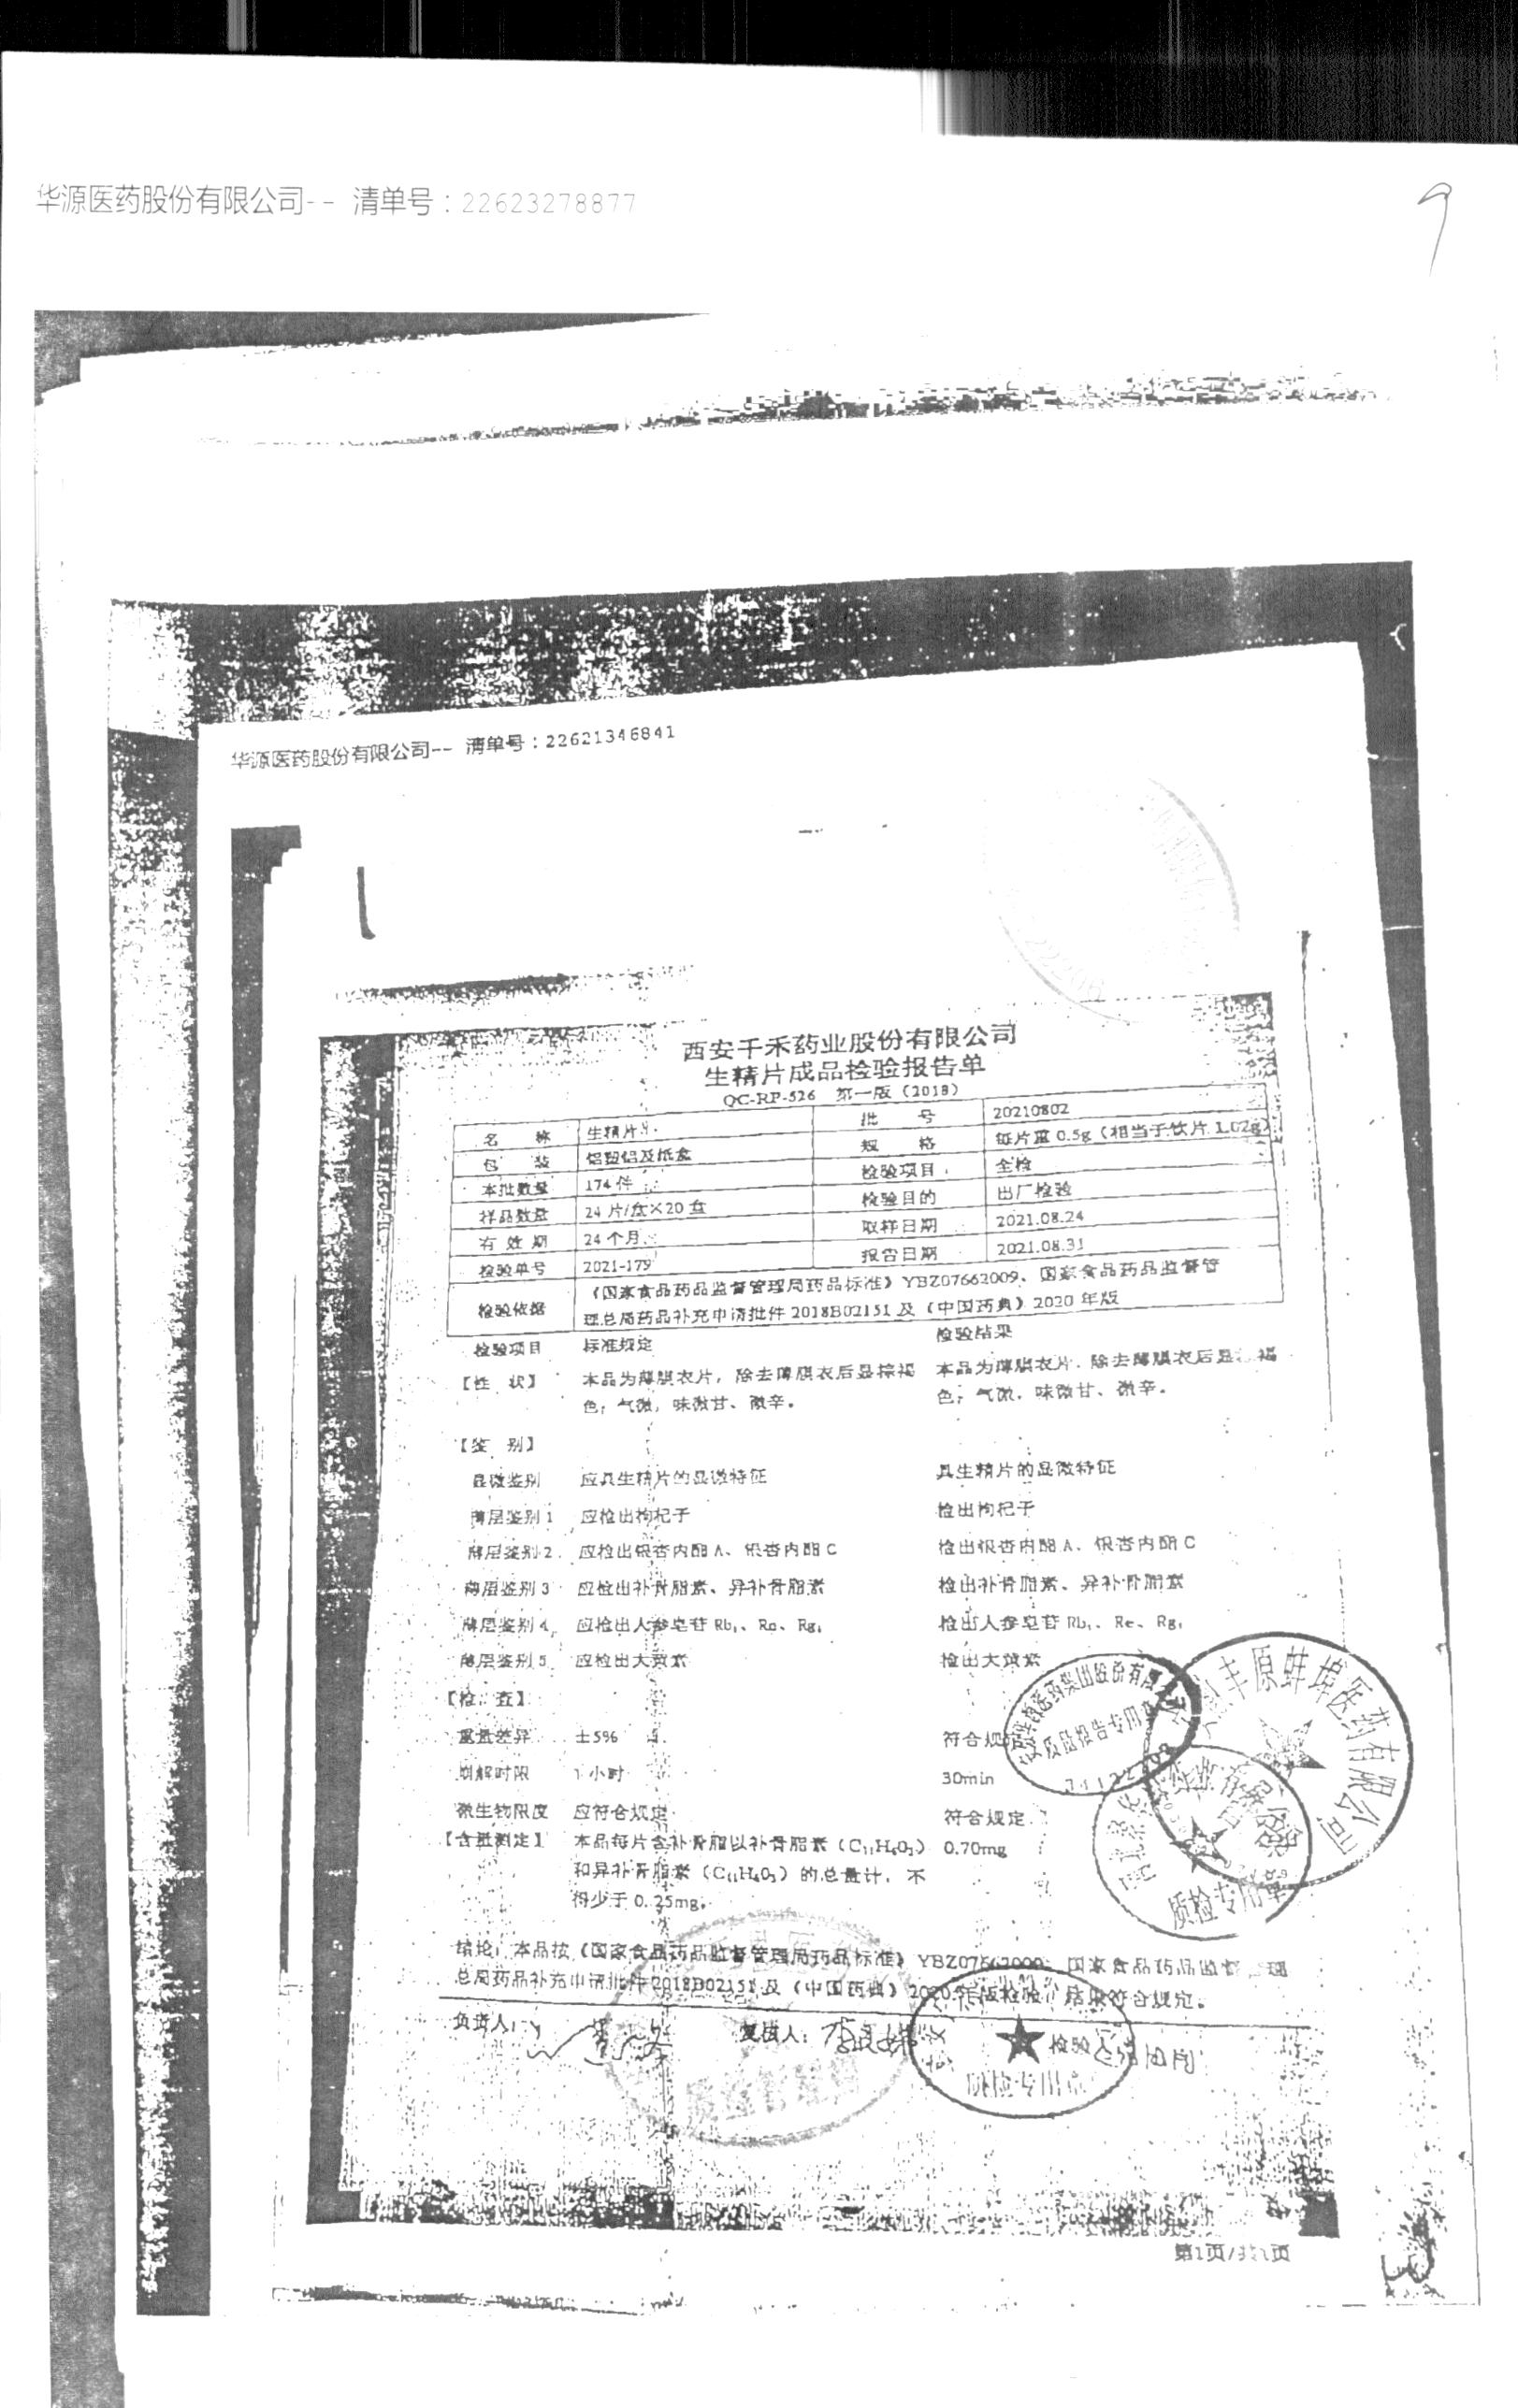 华源医药股份有限公司-- 清单号：22623278877
9
华源医药股份有限公司-- 清单号：22621346841
西安千禾药业股份有限公司
生精片成品检验报告单
QC-RP-526 第一版（2018）
名 称 生精片 批 号 20210802
包 装 铝塑铝及纸盒 规 格 每片重 0.5g（相当于饮片 1.02g）
本批数量 174 件 检验项目 全检
样品数量 24 片/盒×20 盒 检验目的 出厂检验
有 效 期 24 个月 取样日期 2021.08.24
检验单号 2021-179 报告日期 2021.08.31
检验依据 《国家食品药品监督管理局药品标准》YBZ07662009、国家食品药品监督管
理总局药品补充申请批件 2018B02151 及《中国药典》2020 年版
检验项目 标准规定 检验结果
【性 状】 本品为薄膜衣片，除去薄膜衣后显棕褐 本品为薄膜衣片，除去薄膜衣后显 褐
色；气微，味微甘、微辛。 色；气微，味微甘、微辛。
【鉴 别】
显微鉴别 应具生精片的显微特征 具生精片的显微特征
薄层鉴别 1 应检出枸杞子 检出枸杞子
薄层鉴别 2 应检出银杏内酯 A、银杏内酯 C 检出银杏内酯 A、银杏内酯 C
薄层鉴别 3 应检出补骨脂素、异补骨脂素 检出补骨脂素、异补骨脂素
薄层鉴别 4 应检出人参皂苷 Rb₁、Re、Rg₁ 检出人参皂苷 Rb₁、Re、Rg₁
薄层鉴别 5 应检出大黄素 检出大黄素
【检 查】
重量差异 ±5% 符合规
崩解时限 1 小时 30min
微生物限度 应符合规定 符合规定
【含量测定】 本品每片含补骨脂以补骨脂素（C₁₁H₆O₃） 0.70mg
和异补骨脂素（C₁₁H₆O₃）的总量计，不
得少于 0.25mg。
结论：本品按《国家食品药品监督管理局药品标准》YBZ07662009、国家食品药品监督 理
总局药品补充申请批件 2018B02151 及《中国药典》2020 年版检验，结果符合规定。
负责人： 复核人： 检验人
丰原蚌埠医药有限公司
药集团股份有限
质量报告专用
质检专用章
质检专用章
质量管理部
第1页/共1页